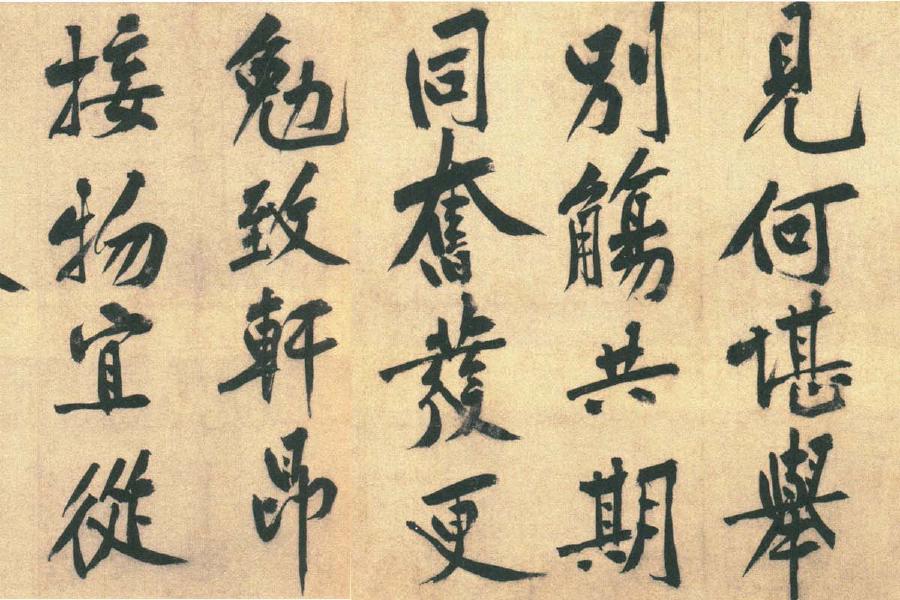 見何堪舉
別觴共期
同奮發更
勉致軒昂
接物宜從